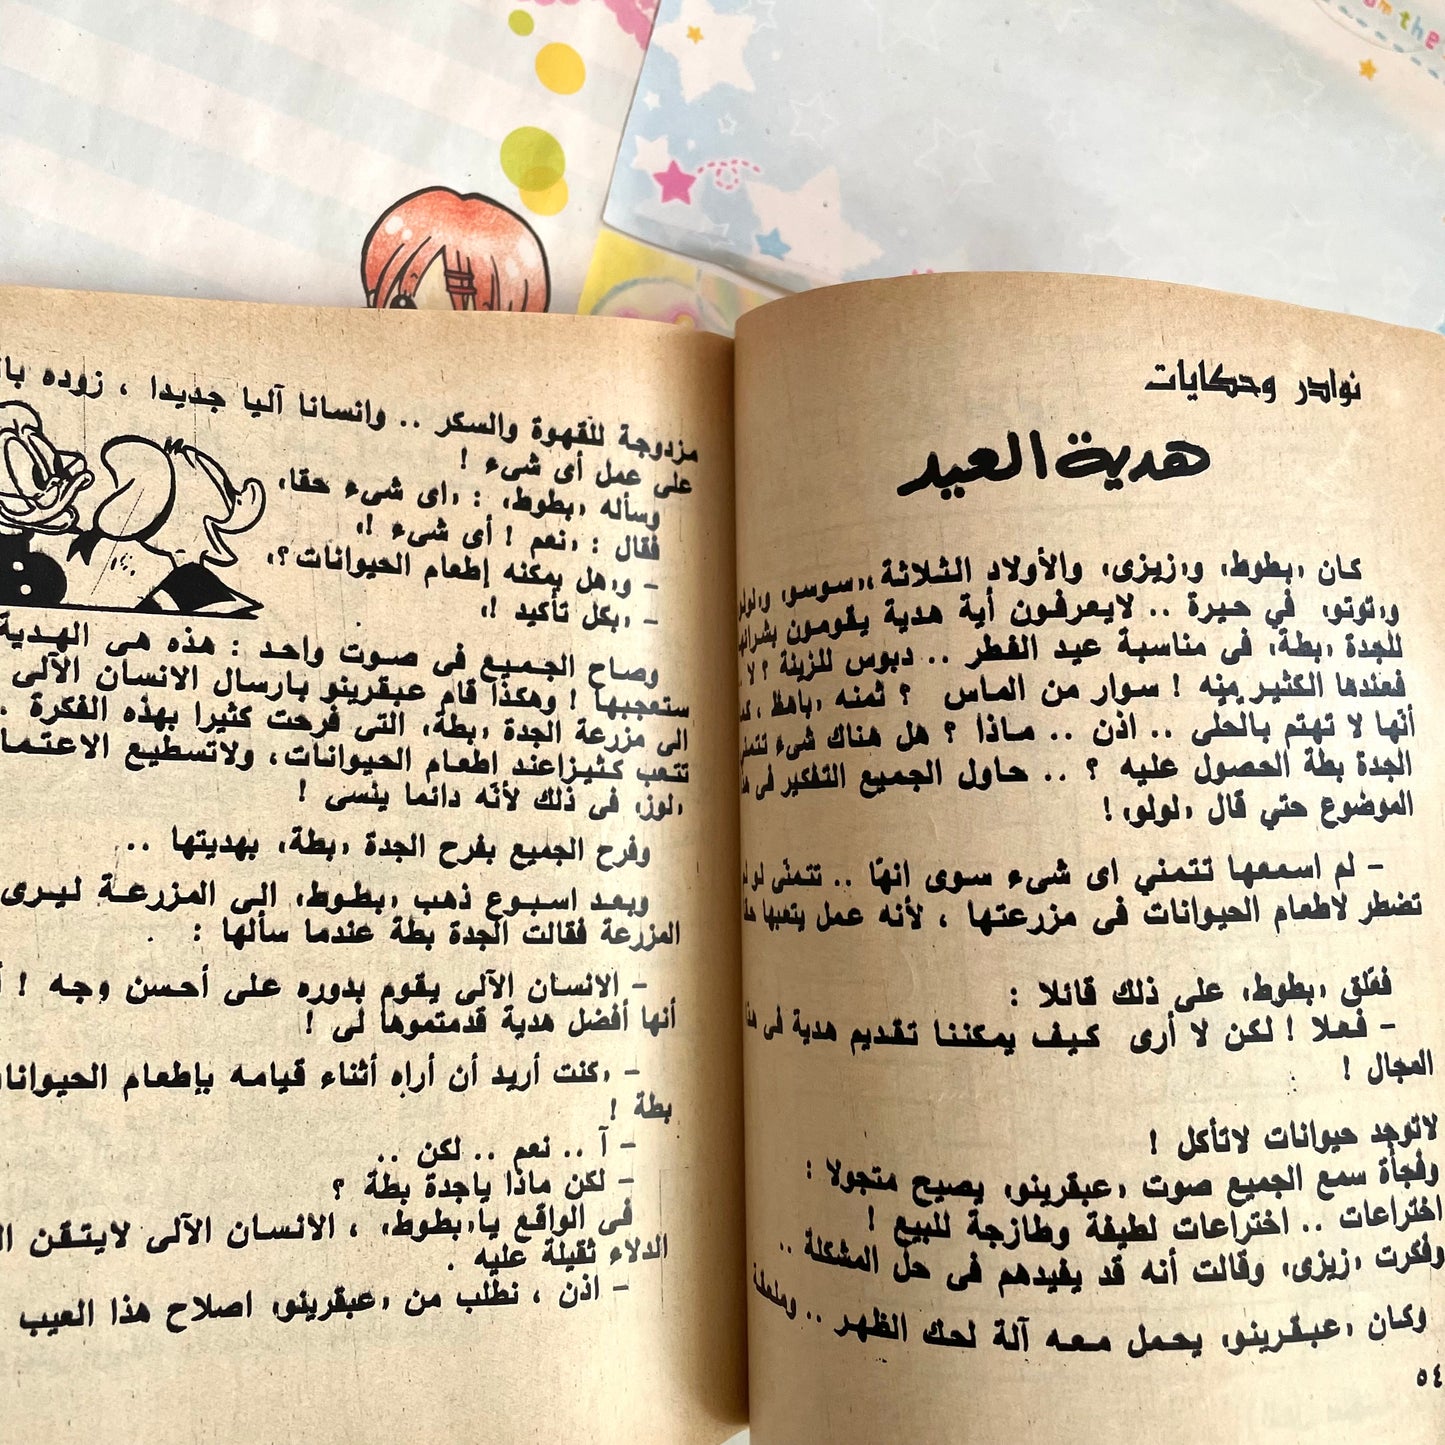 نوادر وحكايات
هدية العيد
كان «بطوط» و«زيزى» والأولاد الثلاثة «سوسو» و«لولو»
و«توتو» في حيرة .. لايعرفون أية هدية يقومون بشرائها
للجدة «بطة» فى مناسبة عيد الفطر .. دبوس للزينة ؟ لا ..
فعندها الكثير منه ! سوار من الماس ؟ ثمنه «باهظ» ، كما
أنها لا تهتم بالحلى .. اذن .. ماذا ؟ هل هناك شىء تتمنى
الجدة بطة الحصول عليه ؟ .. حاول الجميع التفكير فى هذا
الموضوع حتي قال «لولو» !
- لم اسمعها تتمني اى شىء سوى انها .. تتمنى لو لم
تضطر لاطعام الحيوانات فى مزرعتها ، لأنه عمل يتعبها حقا
فعلق «بطوط» على ذلك قائلا :
- فعلا ! لكن لا أرى كيف يمكننا تقديم هدية فى هذا
المجال !
لاتوجد حيوانات لاتأكل !
وفجأة سمع الجميع صوت «عبقرينو» يصيح متجولا :
اختراعات .. اختراعات لطيفة وطازجة للبيع !
وفكرت «زيزى» وقالت أنه قد يفيدهم فى حل المشكلة ..
وكان «عبقرينو» يحمل معه آلة لحك الظهر .. وملعقة
٥٤
مزدوجة للقهوة والسكر .. وانسانا آليا جديدا ، زوده
على عمل أى شىء !
وسأله «بطوط» : «اى شىء حقا»
فقال : «نعم ! أى شىء !»
- و«هل يمكنه إطعام الحيوانات ؟»
- «بكل تأكيد !»
وصاح الجميع فى صوت واحد : هذه هى الهدية
ستعجبها ! وهكذا قام عبقرينو بارسال الانسان الآلى
الى مزرعة الجدة «بطة» التى فرحت كثيرا بهذه الفكرة .
تتعب كثيرا عند اطعام الحيوانات، ولاتسطيع
«لوز» فى ذلك لأنه دائما ينسى !
وفرح الجميع بفرح الجدة «بطة» بهديتها ..
وبعد اسبوع ذهب «بطوط» الى المزرعة ليرى
المزرعة فقالت الجدة بطة عندما سألها :
- الانسان الآلى يقوم بدوره على أحسن وجه !
أنها أفضل هدية قدمتموها لى !
- «كنت أريد أن أراه أثناء قيامه بإطعام الحيوانات
بطة !
- آ .. نعم .. لكن ..
- لكن ماذا ياجدة بطة ؟
فى الواقع يا«بطوط» ، الانسان الآلى لايتقن
الدلاء ثقيلة عليه .
- اذن ، نطلب من «عبقرينو» اصلاح هذا العيب